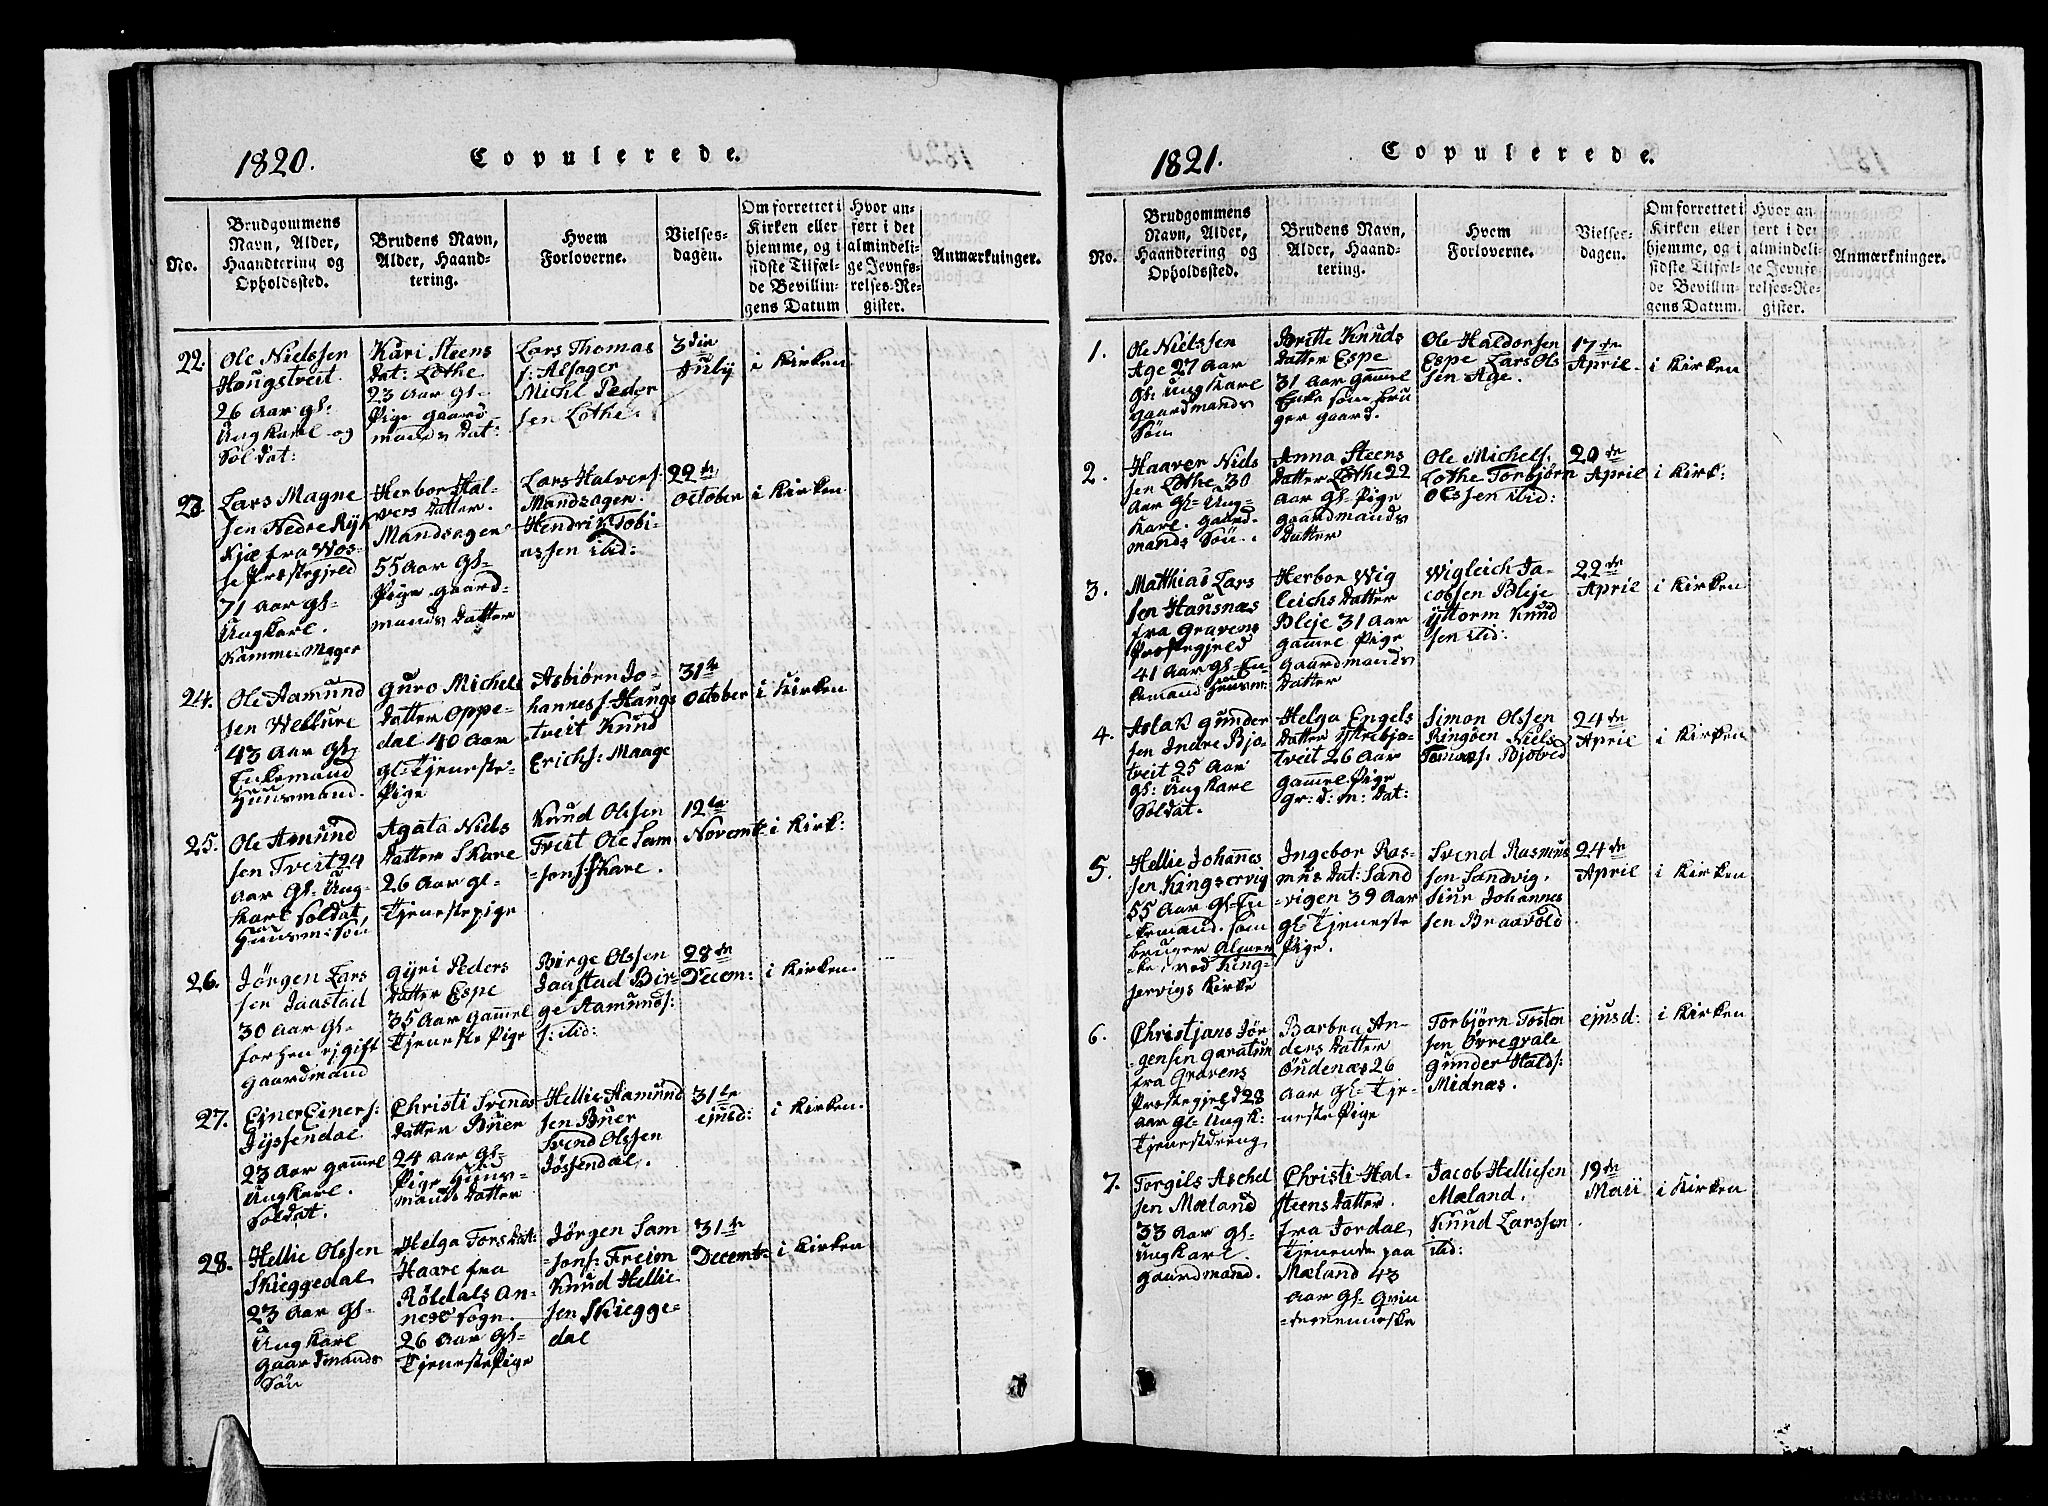 1820.
Copulerede.
No.
Brudgommens
Navn, Alder,
Haandtering og
Opholdssted.
Brudens Navn,
Alder, Haand-
tering.
Hvem
Forloverne.
Vielses-
dagen.
Om forrettet i
Kirken eller
hjemme, og i
sidste Tilfæl-
de Bevillin-
gens Datum
Hvor an-
ført i det
almindeli-
ge Jevnfø-
relses-Re-
gister.
Anmærkninger.
22.
Ole Nielssen
Haugstveit
26 Aar gl:
Ungkarl og
Soldat:
Kari Steens
Dat: Lothe
23 Aar gl-
Pige gaard
mands Dat:
Lars Thomas
s: Alsager
Michl Peder
sen Lothe
3die
July
i Kirken
23
Lars Magne
sen Nedre Ryk
kje fra Wos-
se Præstegjeld
71 Aar gl-
Ungkarl.
Kamme-Mager
Herbor Hal-
vers Datter.
Mandsager
55 Aar gl-
Pige gaard-
mands Datter
Lars Halvers:
Mandsager.
Hendrik Tobi-
assen ibid:
22de
October
i Kirken
24.
Ole Aamund
sen Wellure
43 Aar gl-
Enkemand
Huusmand.
Guro Michels
Datter Oppe-
dal 40 Aar
gl- Tjeneste-
Pige
Asbiørn Jo-
hanness: Haugs
tveit Knud
Erichs: Maage
31te
October
i Kirken
25.
Ole Amund
sen Tveit 24
Aar gl- Ung-
Karl Soldat,
Huusm: Søn
Agata Niels
Datter Skare
26 Aar gl-
Tjenestepige
Knud Olssen
Tveit Ole Sam
-sons: Skare.
12te
Novemb:
i Kirk:
26.
Jørgen Lars
sen Jaastad
30 Aar gl-
forhen ejgift
Gaardmand
Gyri Peders
Datter Espe
35 Aar gammel
Tjeneste Pige
Birge Olssen
Jaastad Bir-
ge Aamunds:
s: ibid:
28de
Decem:
i Kirken.
27.
Ejner Einers:
Jyssendal
23 Aar gammel
Ungkarl.
Soldat.
Christi Svends
Datter Buer
24 Aar gl-
Pige Huus-
mands Datter
Hellie Aamund
sen Buer
Svend Olssen
Jøssendal.
31te
ejusd:
i Kirken.
28.
Hellie Olssen
Skieggedal
23 Aar gl-
Ungkarl
Gaardmands
Søn
Helga Tors Dat:
Haare fra
Røldals An-
nexe Sogn.
26 Aar gl-
Tjeneste Pige
Jørgen Sam
-sons: Freim
Knud Hellie
sen Skiegge-
dal
31te
Decemb:
i Kirken
1821.
Copulerede.
No.
Brudgommens
Navn, Alder,
Haandtering og
Opholdssted.
Brudens Navn,
Alder, Haand-
tering.
Hvem
Forloverne.
Vielses-
dagen.
Om forrettet i
Kirken eller
hjemme, og i
sidste Tilfæl-
de Bevillin-
gens Datum.
Hvor an-
ført i det
almindeli-
ge Jevnfø-
relses-Re-
gister.
Anmærkninger.
1.
Ole Nielssen
Age 27 Aar
gl: Ungkarl
gaardmands
Søn
Britte Knuds
Datter Espe
31 Aar gammel
Enke som bru
ger gaard.
Ole Haldorsen
Espe Lars Ols
sen Age.
17de
April.
i Kirken
2.
Haaver Niels
sen Lothe 30
Aar gl- Ung-
Karl. Gaard-
mands Søn.
Anna Steens
Datter Lothe 22
Aar gl- Pige
gaardmands
Datter
Ole Michels.
Lothe Torbjørn
Olssen ibid:
20de
April
i Kirk:
3.
Matthias Lars
sen Hausnæs
fra Gravens
Præstegjeld
41 Aar gl- En-
kemand Huusm:
Herbor Wig
leichs Datter
Bleje 31 Aar
gammel Pige
gaardmands
Datter
Wigleich Ja-
cobsen Bleje
Ystorm Knud
sen ibid:
22de
April
i Kirken
4.
Aslak Gunder
sen Indre Bjo-
tveit 25 Aar
gl: Ungkarl
Soldat.
Helga Engels
Datter Ytrebjo-
tveit 26 Aar
gammel Pige
gr: d: m: Dat:
Simon Olssen
Ringøen Niels
Tomass. Bjotved
24de
April
i Kirken
5.
Hellie Johannes
sen Kingservig
55 Aar gl- En
-kemand. som
bruger Almer
-ke, ved King-
servigs Kirke
Ingebor Ras-
mus Dat: Sand
-vigen 39 Aar
gl- Tjeneste
Pige.
Svend Rasmus
sen Sandvig.
Siur Johannes
sen Braavold
24de
April
i Kirken
6.
Christjans Jør
-gensen Garatun
fra Gravens
Præstegjeld 28
Aar gl- Ungk:
Tjenestdreng
Barbra An-
ders Datter
Øndenæs 26
Aar gl- Tje-
neste Pige
Torbjørn Tosten
sen Øvregrale
Gunder Halds:
Midnæs.
ejusd:
i Kirken
7.
Torgils Aschel
sen Mæland
33 Aar gl-
Ungkarl.
Gaardmand.
Christi Hal-
steens Datter.
fra Jordal
Tjenende paa
Mæland 43
Aar gl- Qvin
-demenneske
Jacob Helliesen
Mæland.
Knud Larssen
ibid:
19de
Maii
i Kirken